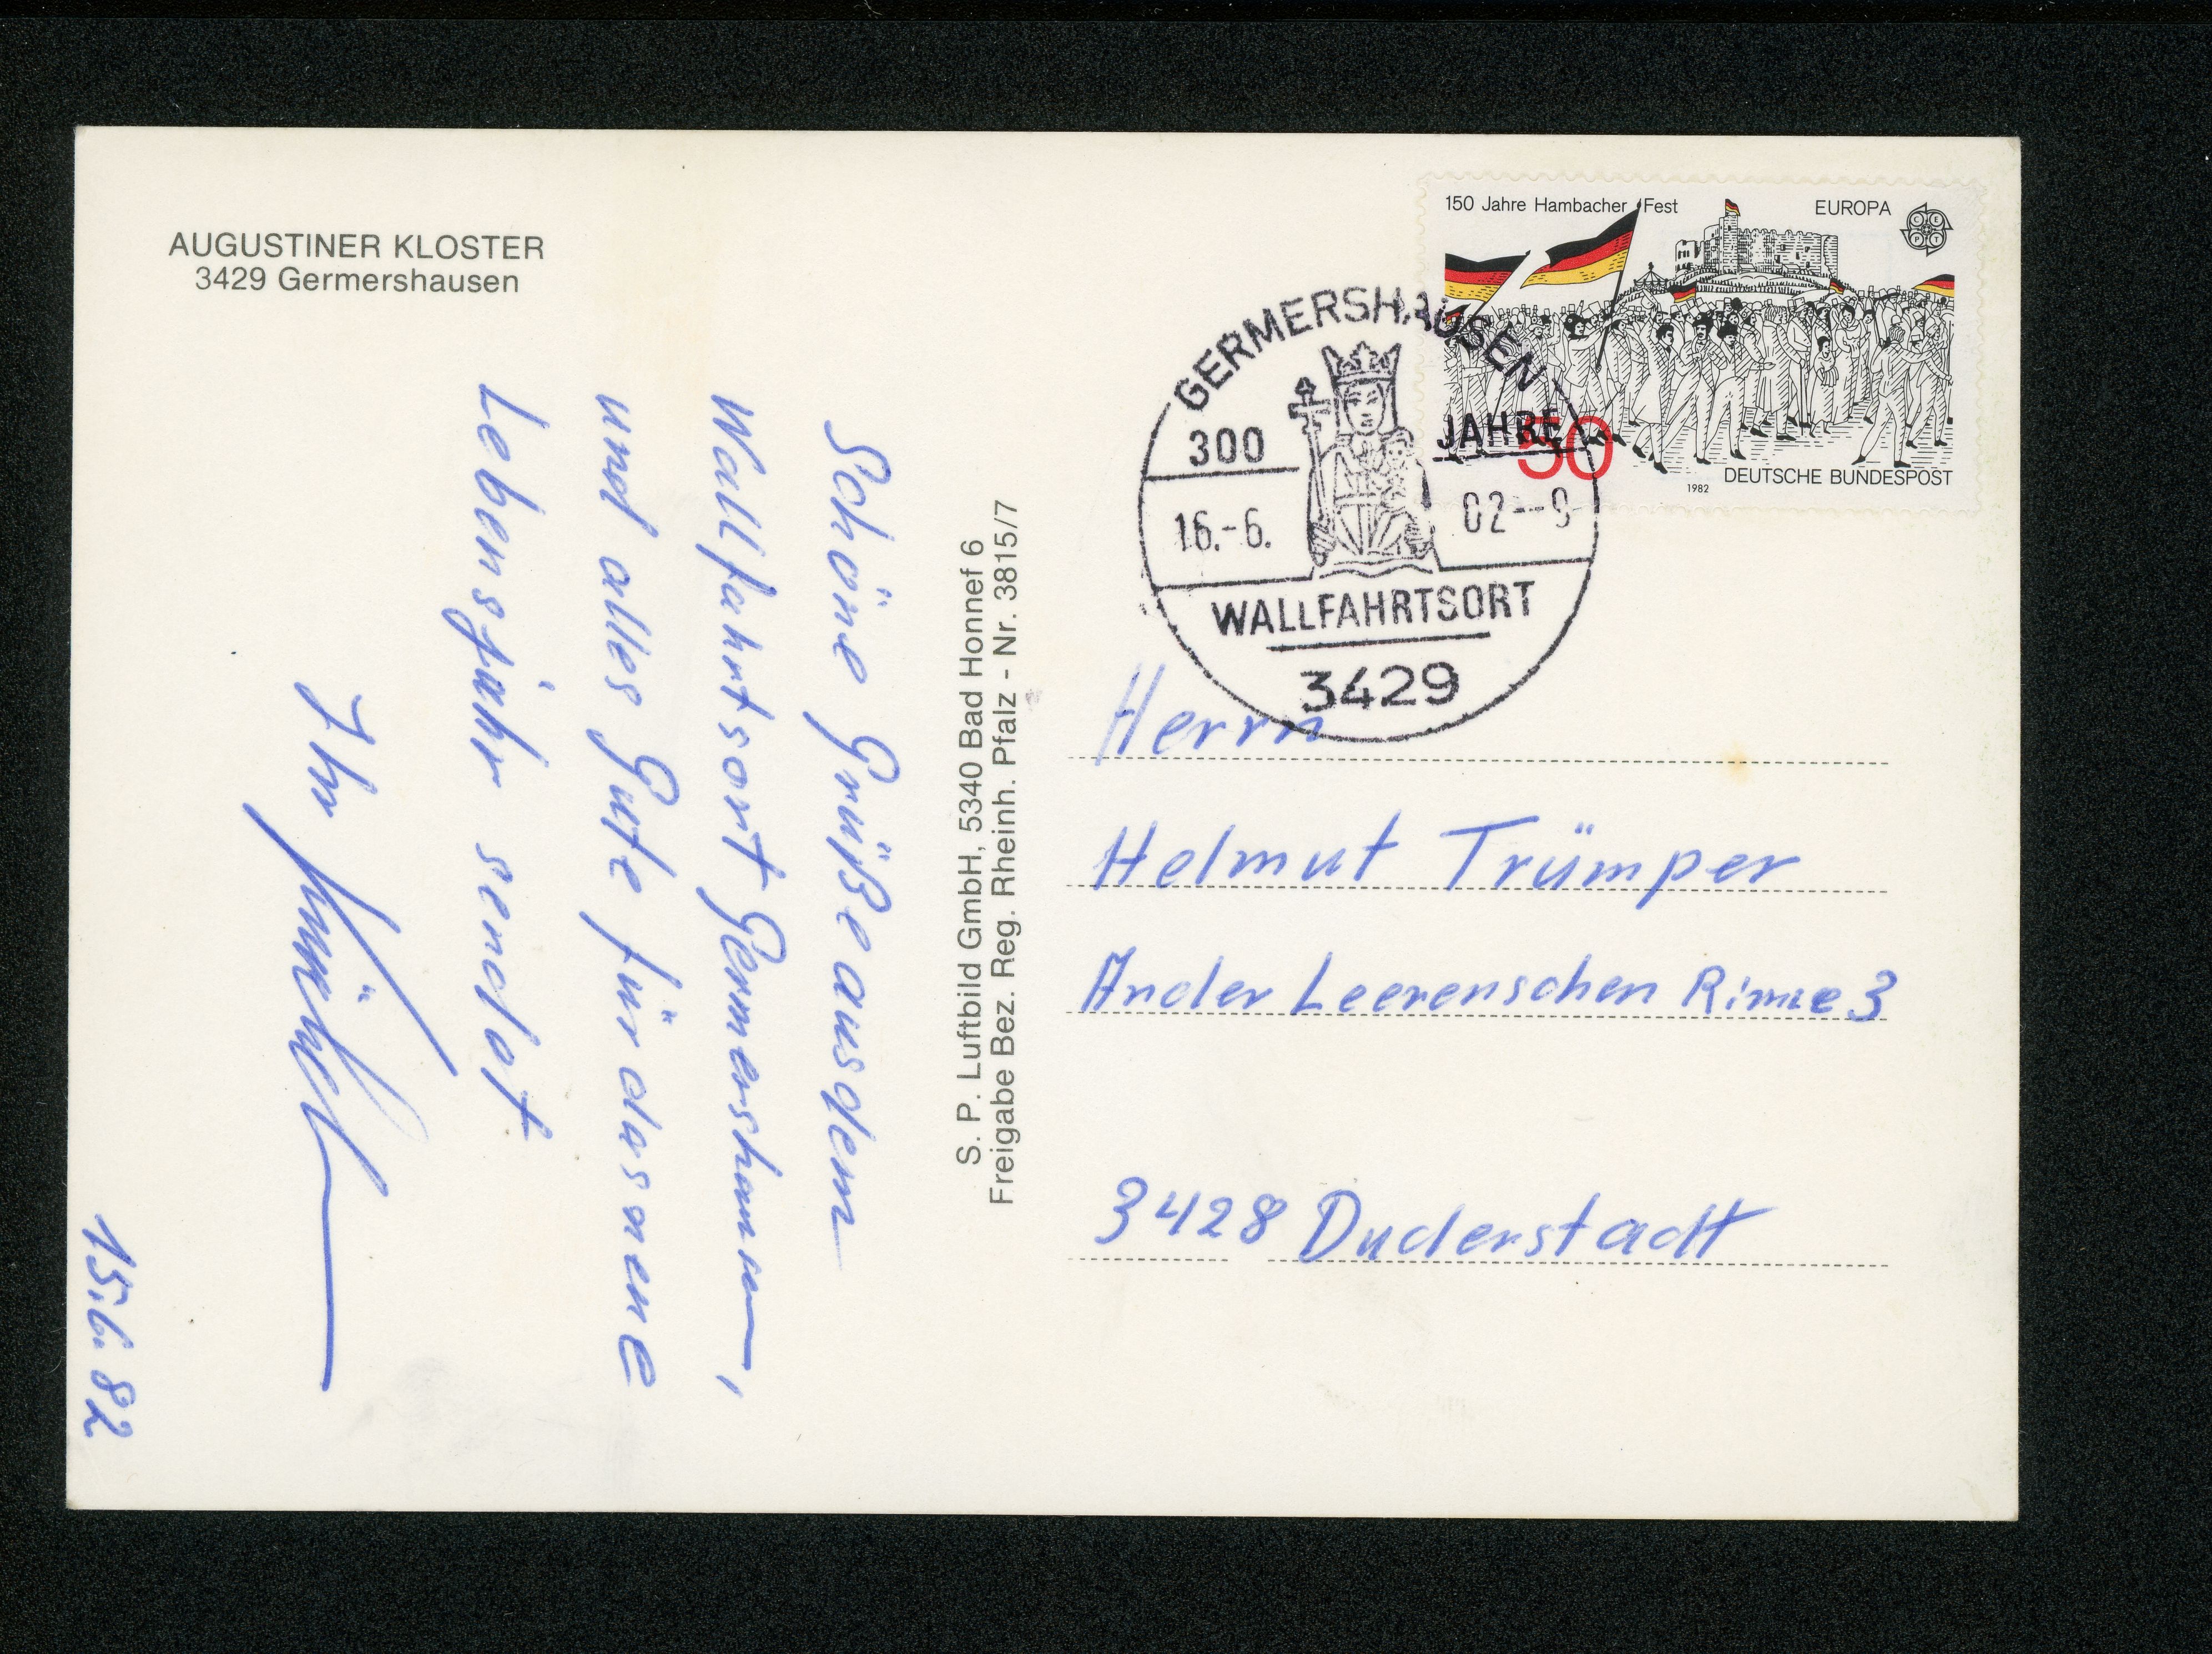 AUGUSTINER KLOSTER
3429 Germershausen
Schöne Grüße aus dem
Wallfahrtsort Germershausen,
und alles Gute für das neue
Lebensjahr sendet
Ihr
15.6.82
S. P. Luftbild GmbH, 5340 Bad Honnef 6
Freigabe Bez. Reg. Rheinh. Pfalz - Nr. 3815/7
150 Jahre Hambacher Fest
EUROPA
CEPT
50
1982
DEUTSCHE BUNDESPOST
GERMERSHAUSEN
300 JAHRE
16.-6. 82--9
WALLFAHRTSORT
3429
Herrn
Helmut Trümper
An der Leerenschen Rinne 3
3428 Duderstadt